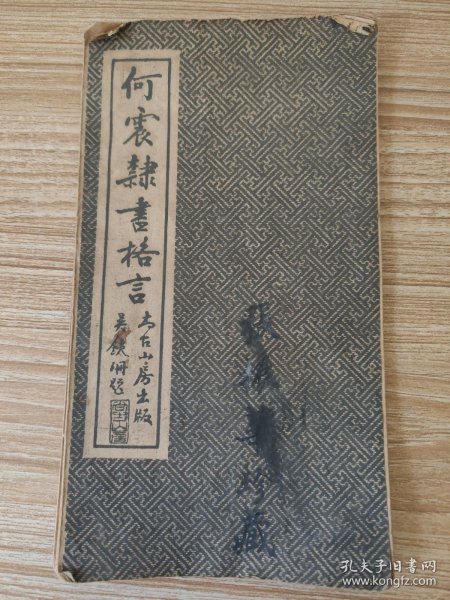 何震隸書格言
尚古山房出版
吴鉄珊題
珍藏
孔夫子旧书网
www.kongfz.com